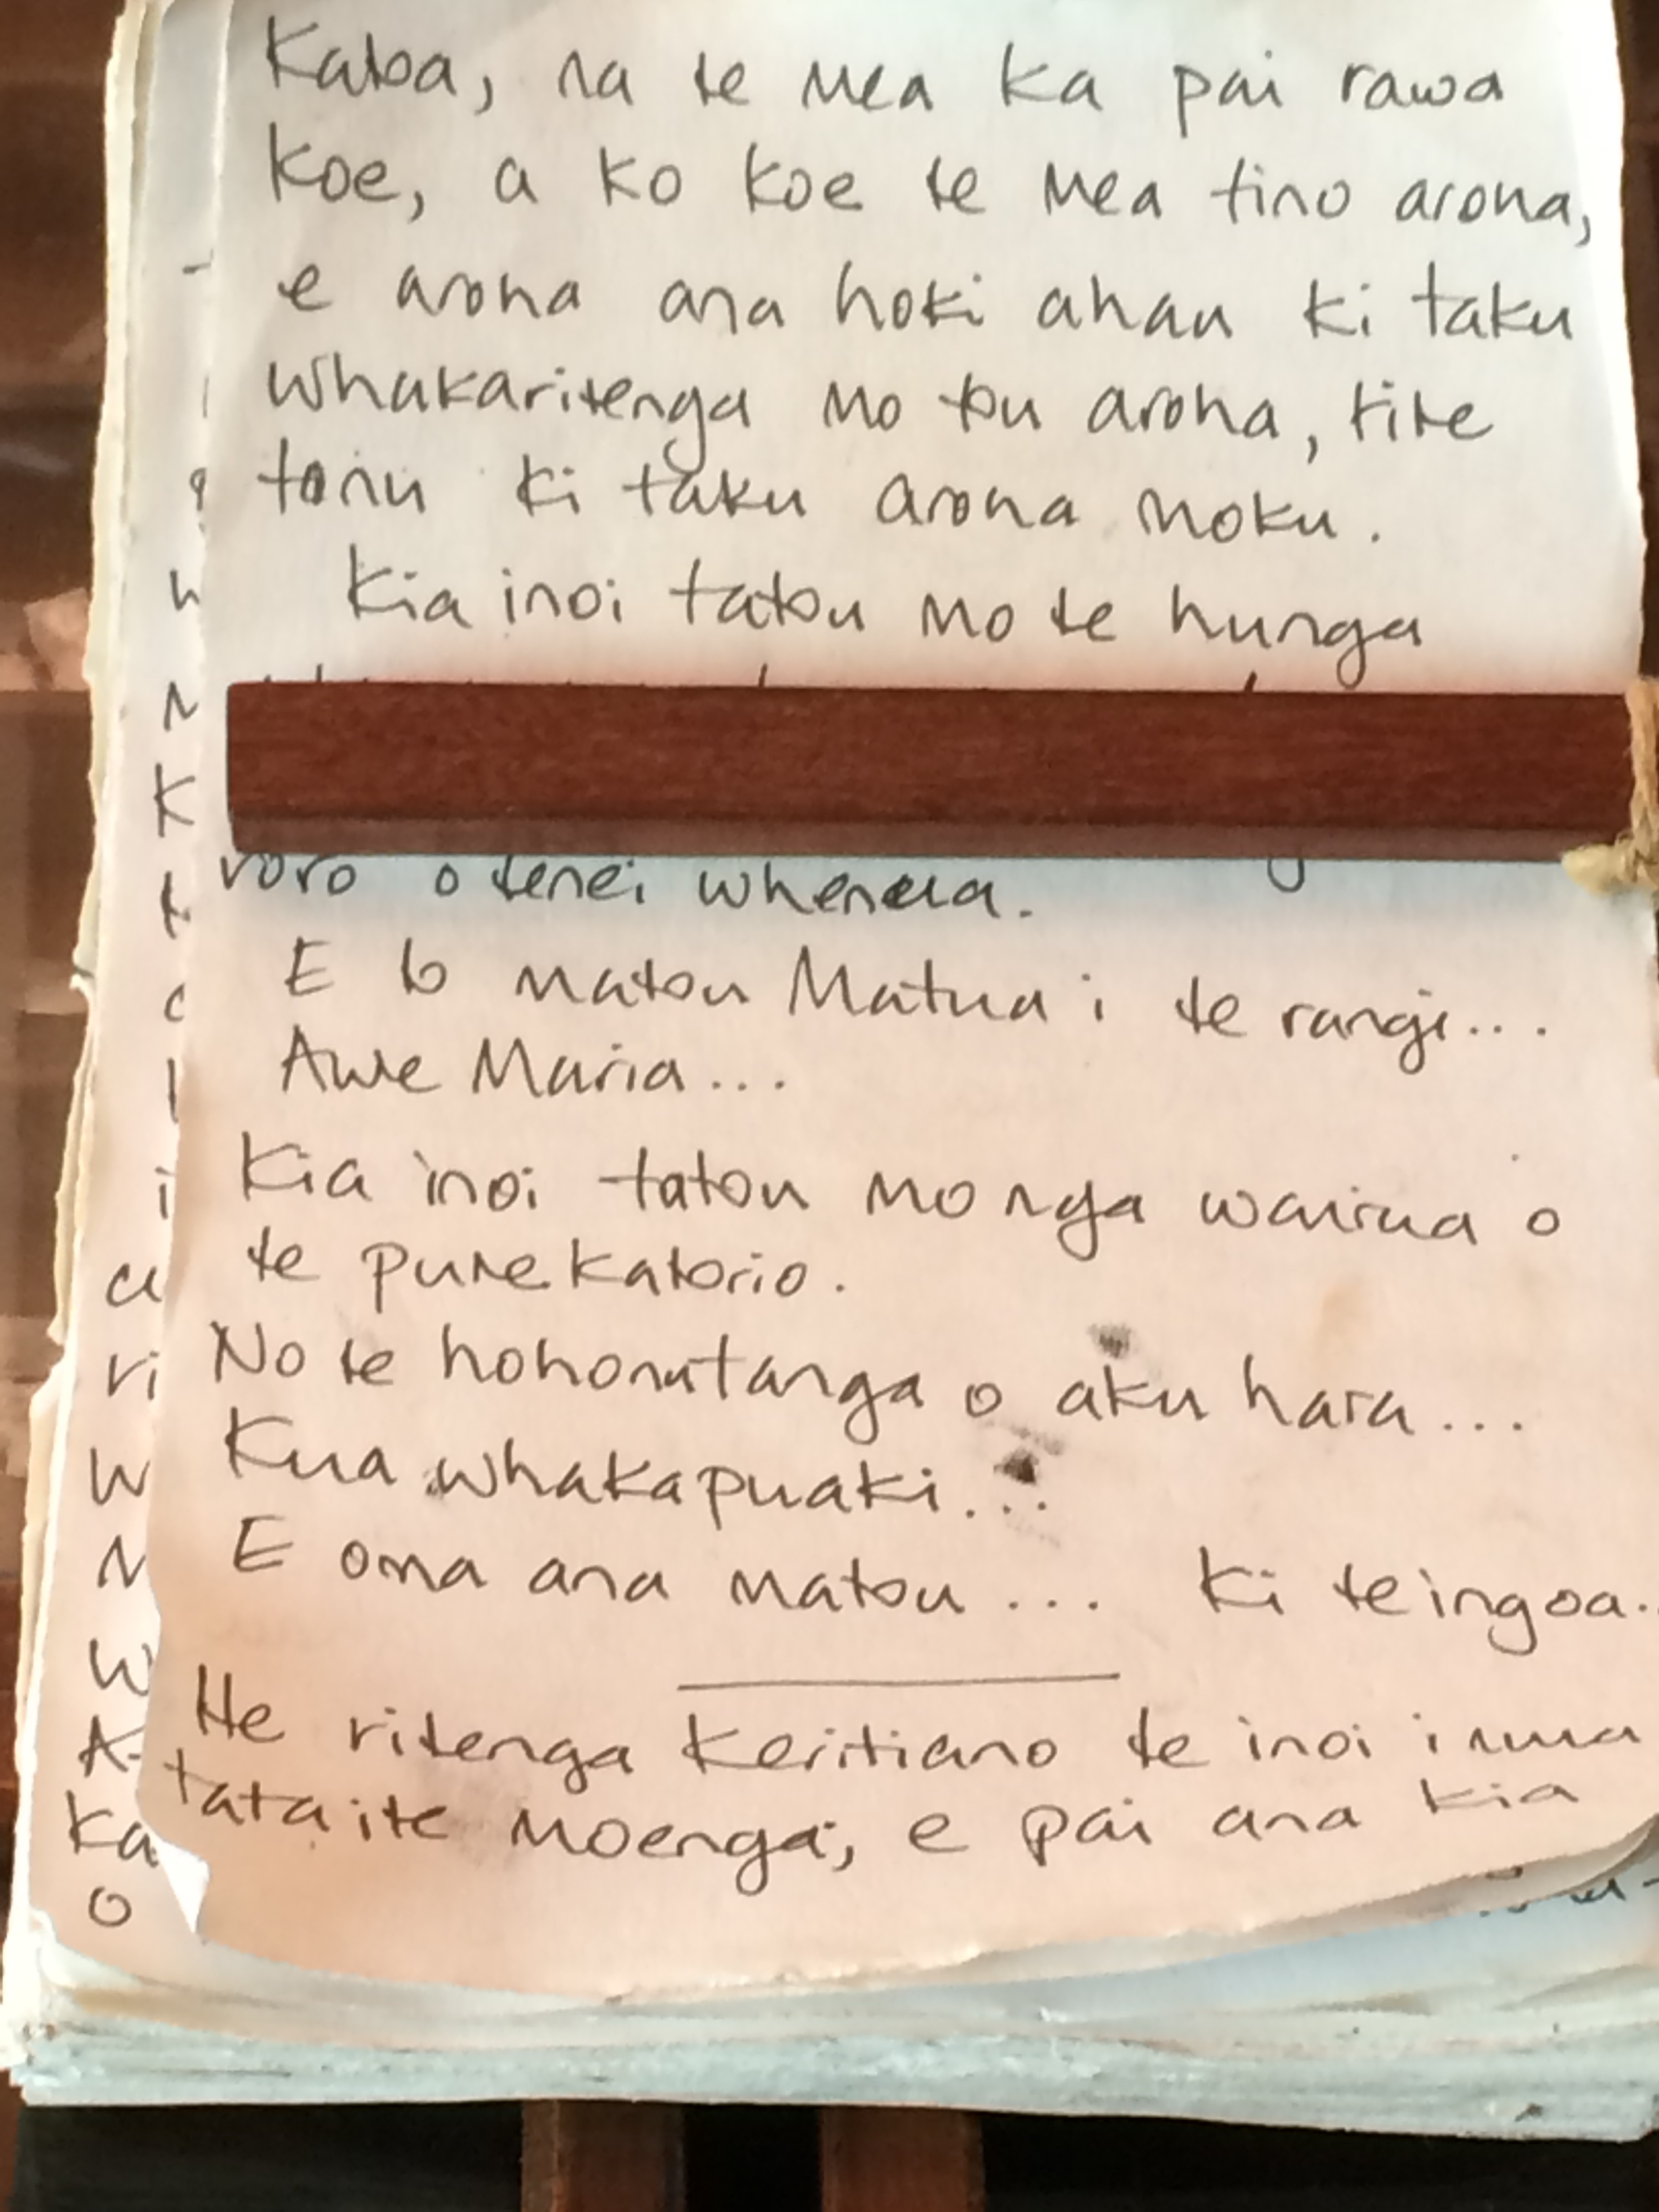 Katoa, na te mea ka pai rawa
koe, a ko koe te mea tino aroha,
e aroha ana hoki ahau ki taku
whakaritenga mo tou aroha, tite
tonu ki taku aroha moku.
Kia inoi tatou mo te hunga
roro o tenei whenua.
E to matou Matua i te rangi...
Awe Maria...
Kia inoi tatou mo nga wairua o
te purekatorio.
No te hohonutanga o aku hara...
Kua whakapuaki...
E oma ana matou... Ki te ingoa..
He ritenga Keritiano te inoi i mua
tata ite moenga; e pai ana kia